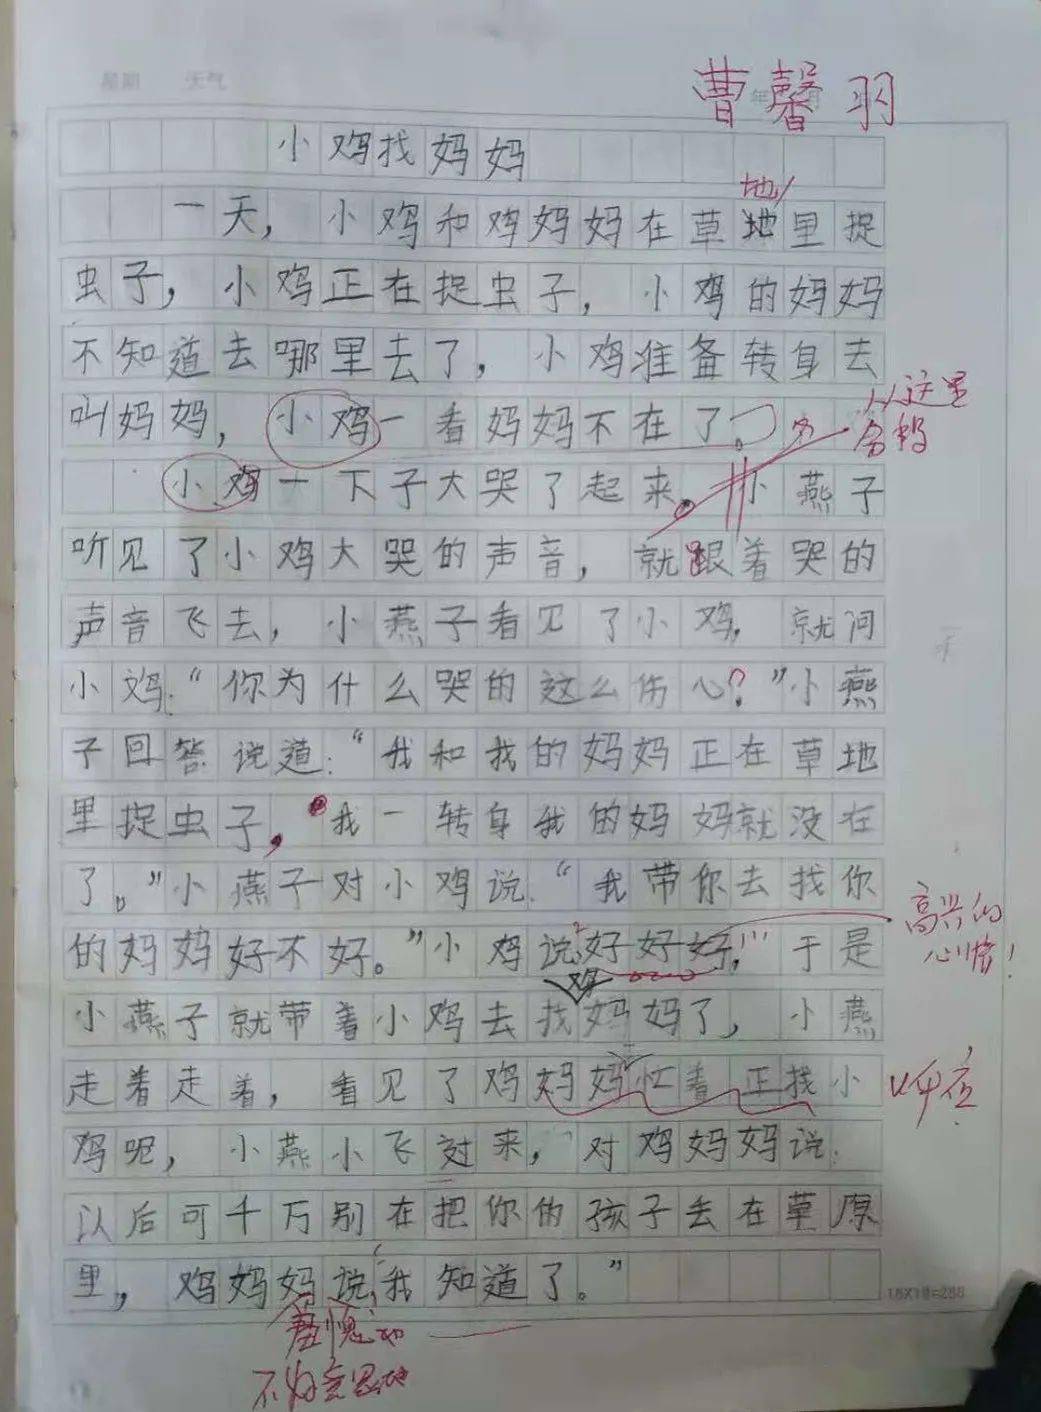 星期 天气
曹馨羽
小鸡找妈妈
地
一天，小鸡和鸡妈妈在草地里捉
虫子，小鸡正在捉虫子，小鸡的妈妈
不知道去哪里去了，小鸡准备转身去
从这里
叫妈妈，小鸡一看妈妈不在了。
小鸡一下子大哭了起来。小燕子
听见了小鸡大哭的声音，就跟着哭的
声音飞去，小燕子看见了小鸡，就问
小鸡：“你为什么哭的这么伤心？”小燕
子回答说道：“我和我的妈妈正在草地
里捉虫子，我一转身我的妈妈就没在
了。”小燕子对小鸡说：“我带你去找你
高兴的
的妈妈好不好。”小鸡说：好好好，”于是
心情！
鸡
小燕子就带着小鸡去找妈妈了，小燕
走着走着，看见了鸡妈妈忙着正找小
呼应
鸡呢，小燕小飞过来，对鸡妈妈说：
以后可千万别在把你的孩子丢在草原
里，鸡妈妈说，我知道了。”
18X16=288
羞愧地
不好意思地